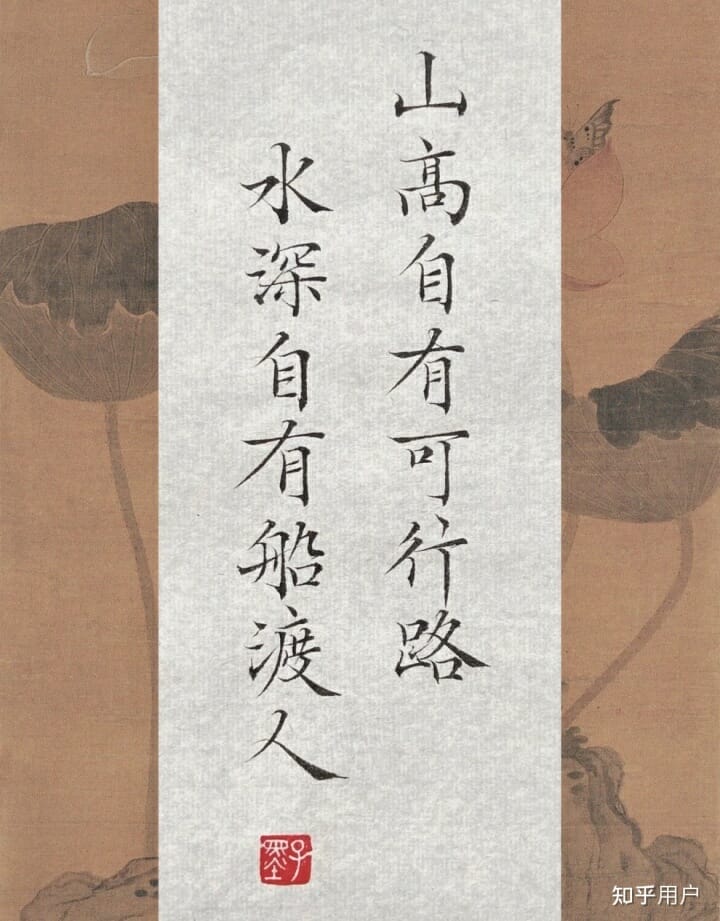 山高自有可行路
水深自有船渡人
子墨
知乎用户